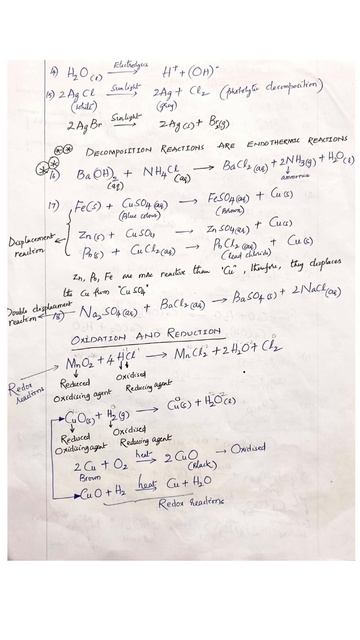 4) H₂O(l) —Electrolysis→ H⁺ + (OH)⁻
15) 2AgCl —Sunlight→ 2Ag + Cl₂ (photolytic decomposition)
(white) (grey)
2AgBr —Sunlight→ 2Ag(s) + Br₂(g)
DECOMPOSITION REACTIONS ARE ENDOTHERMIC REACTIONS
16) Ba(OH)₂ + NH₄Cl → BaCl₂(aq) + 2NH₃(g) + H₂O(l)
(aq) (aq) ↓ ammonia
17) Fe(s) + CuSO₄(aq) → FeSO₄(aq) + Cu(s)
(Blue colour) (Brown)
Displacement reaction ← Zn(s) + CuSO₄ → ZnSO₄(aq) + Cu(s)
Pb(s) + CuCl₂(aq) → PbCl₂(aq) + Cu(s)
(Lead chloride)
Zn, Pb, Fe are more reactive than 'Cu', therefore, they displaces
the Cu from "CuSO₄"
Double displacement reaction ← 18) Na₂SO₄(aq) + BaCl₂(aq) → BaSO₄(s) + 2NaCl(aq)
OXIDATION AND REDUCTION
MnO₂ + 4HCl → MnCl₂ + 2H₂O + Cl₂
Redox reactions
Reduced Oxidised
Oxidising agent Reducing agent
CuO(s) + H₂(g) → Cu(s) + H₂O(l)
Reduced Oxidised
Oxidising agent Reducing agent
2Cu + O₂ —heat→ 2CuO → Oxidised
Brown (Black)
CuO + H₂ —heat→ Cu + H₂O
Redox reactions